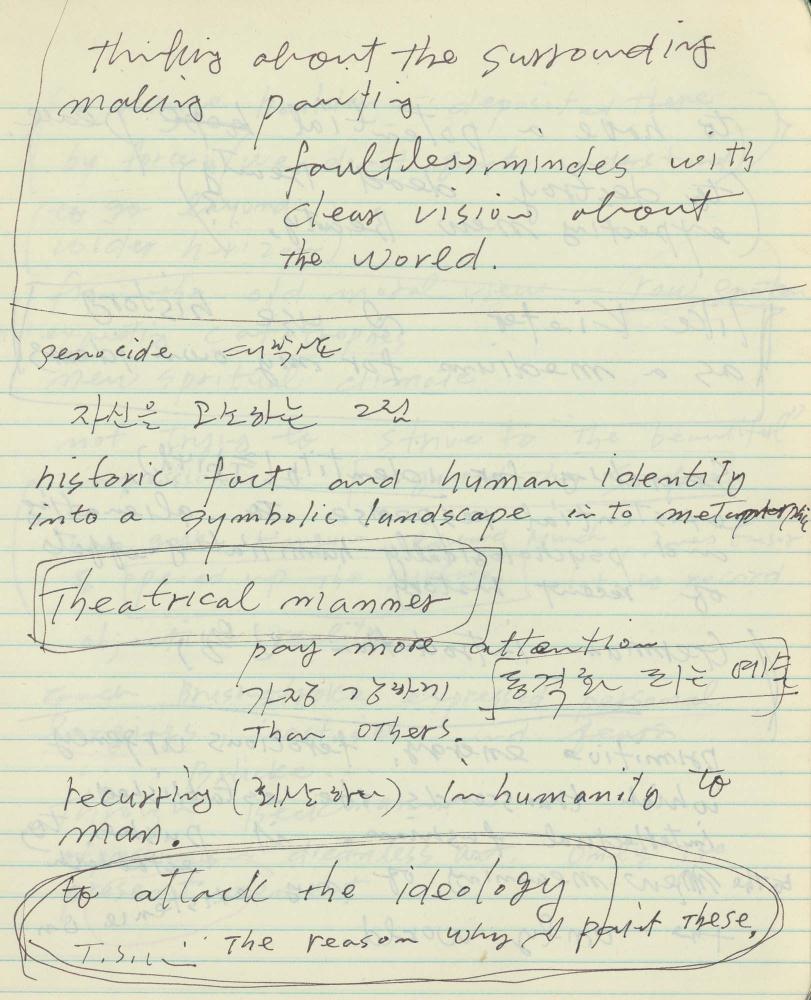 thinking about the surrounding
making panting
faultless, mindes with
clear vision about
the world.
genocide 대학살
자신을 고소하는 그림
historic fact and human identity
into a symbolic landscape in to metamorphic
Theatrical manner
pay more attention
가장 강하게 동격화 되는 예술
than others.
recurring (회상하는) inhumanity to
man.
to attack the ideology
The reason why I paint these,